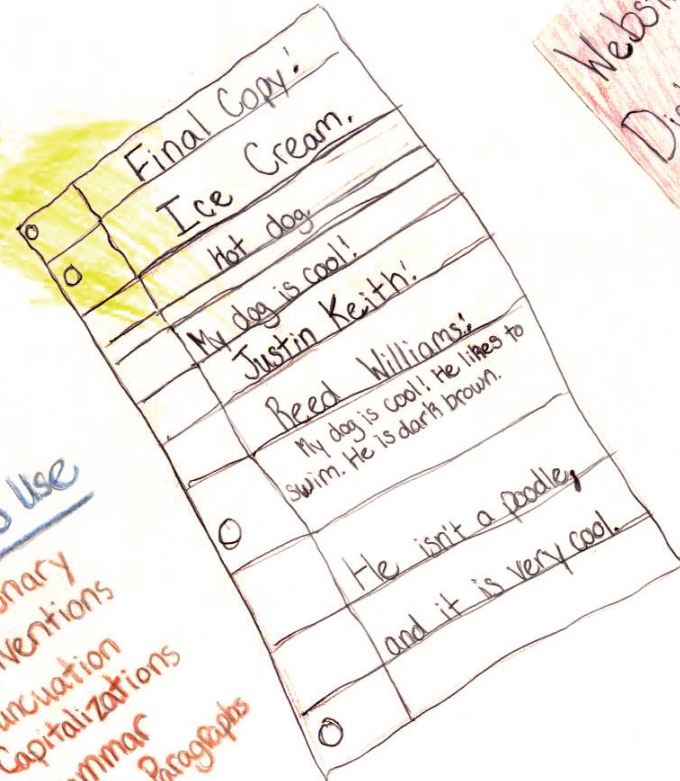 Final Copy!
Ice Cream.
Hot dog
My dog is cool!
Justin Keith!
Reed Williams!
My dog is cool! He likes to
swim. He is dark brown.
He isn't a poodle,
and it is very cool.
Use
Capitalizations
Paragraphs